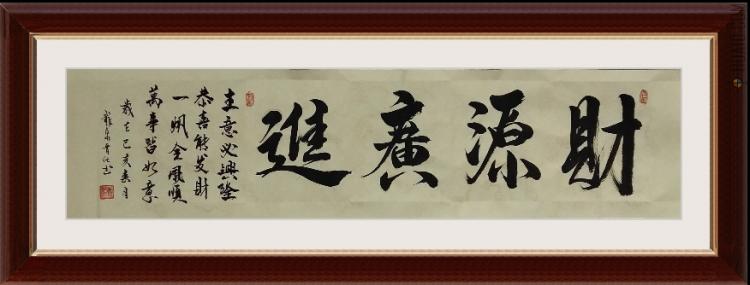 財源廣進
生意必興隆
恭喜能发財
一帆全風順
萬事皆如意
歲在己亥春月